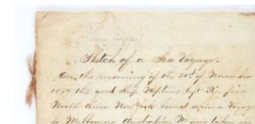 Sketch of a Sea Voyage.
On the morning of the 21st of November
1857 the good ship Neptune left Pier five
North River New York bound upon a Voyage
to Melbourne Australia We were taken in